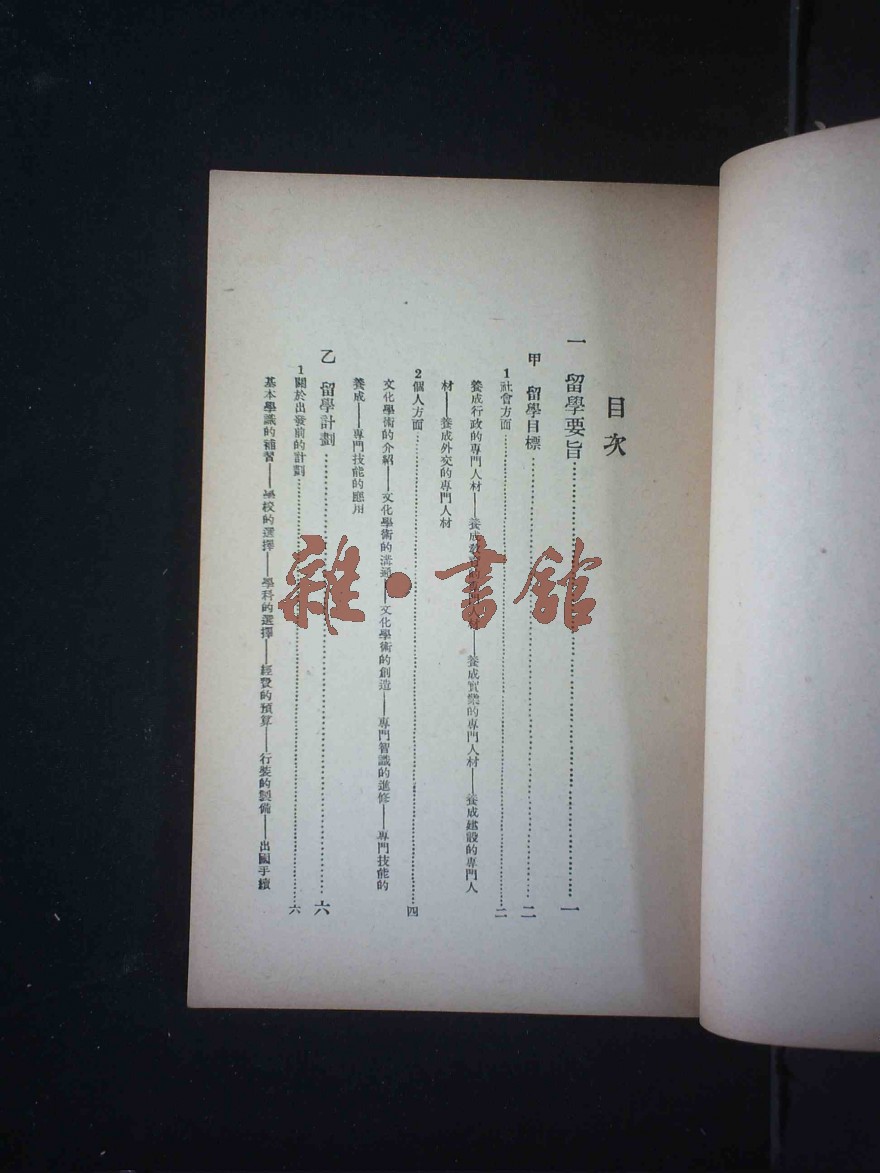 目次
一 留學要旨…………一
甲 留學目標…………二
1 社會方面…………二
養成行政的專門人材——養成教育的專門人材——養成實業的專門人材——養成建設的專門人
材——養成外交的專門人材
2 個人方面…………四
文化學術的介紹——文化學術的溝通——文化學術的創造——專門智識的進修——專門技能的
養成——專門技能的應用
乙 留學計劃…………六
1 關於出發前的計劃…………六
基本學識的補習——學校的選擇——學科的選擇——經費的預算——行裝的製備——出國手續
雜·書館